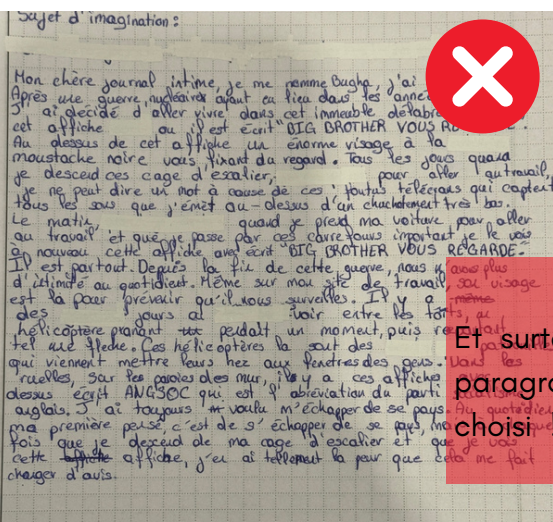 Sujet d'imagination :
Mon chère journal intime, je me nomme Bugha, j'ai
Après une guerre nucléaire ayant eu lieu dans les anné
J'ai décidé d'aller vivre dans cet immeuble délabré
cet affiche ou il est écrit "BIG BROTHER VOUS RE
Au dessus de cet affiche un énorme visage à la
moustache noire vous fixant du regard. Tous les jours quand
je descend ces cage d'escalier, pour aller au travail,
je ne peut dire un mot à cause de ces foutus télécrans qui capten
tous les sons que j'émet au-dessus d'un chuchotement très bas.
Le matin quand je prend ma voiture pour aller
au travail et que je passe par ces carrefours important je le vois
à nouveau cette affiche avec écrit "BIG BROTHER VOUS REGARDE."
Il est partout. Depuis la fin de cette guerre, nous n'avons plus
d'intimité au quotidien. Même sur mon site de travail, son visage
est la pour prévenir qu'il nous surveilles. Il y a même
des jours ou voir entre les toits, un
hélicoptère planant pendant un moment, puis repartant
tel une fleche. Ces hélicoptères la sont des
qui viennent mettre leurs nez aux fenetres des gens. Dans les
ruelles, sur les parois des mur, il y a ces affiches avec
dessus écrit ANGSOC qui est l'abréviation du parti
anglais. J'ai toujours voulu m'échapper de se pays. Au quotidien
ma première pensé, c'est de s'échapper de se pays, ma
fois que je descend de ma cage d'escalier et que je vois
cette affiche, j'en ai tellement la peur que cela me fait
changer d'avis.
Et surto
paragra
choisi